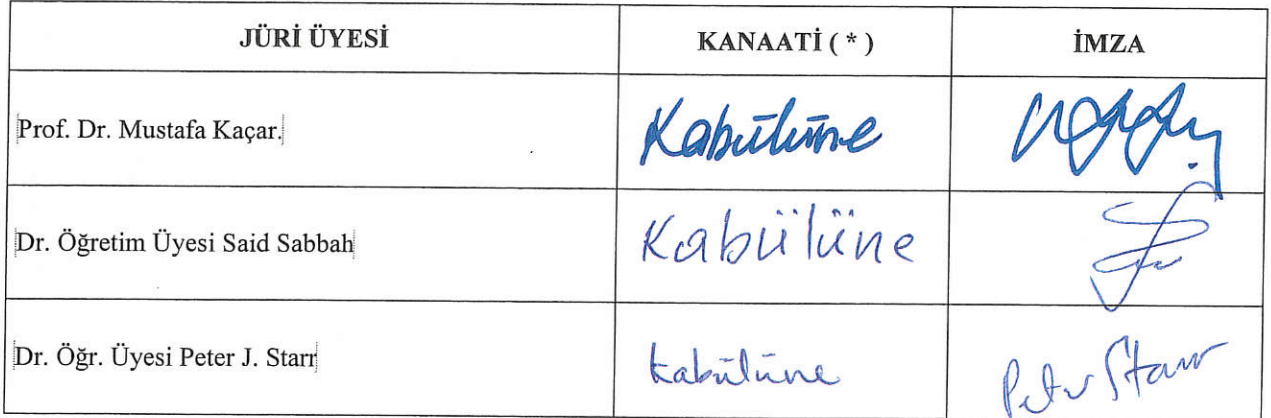 JÜRİ ÜYESİ KANAATİ ( * ) İMZA
Prof. Dr. Mustafa Kaçar. Kabulüne
Dr. Öğretim Üyesi Said Sabbah Kabülüne
Dr. Öğr. Üyesi Peter J. Starr kabulüne Peter Starr